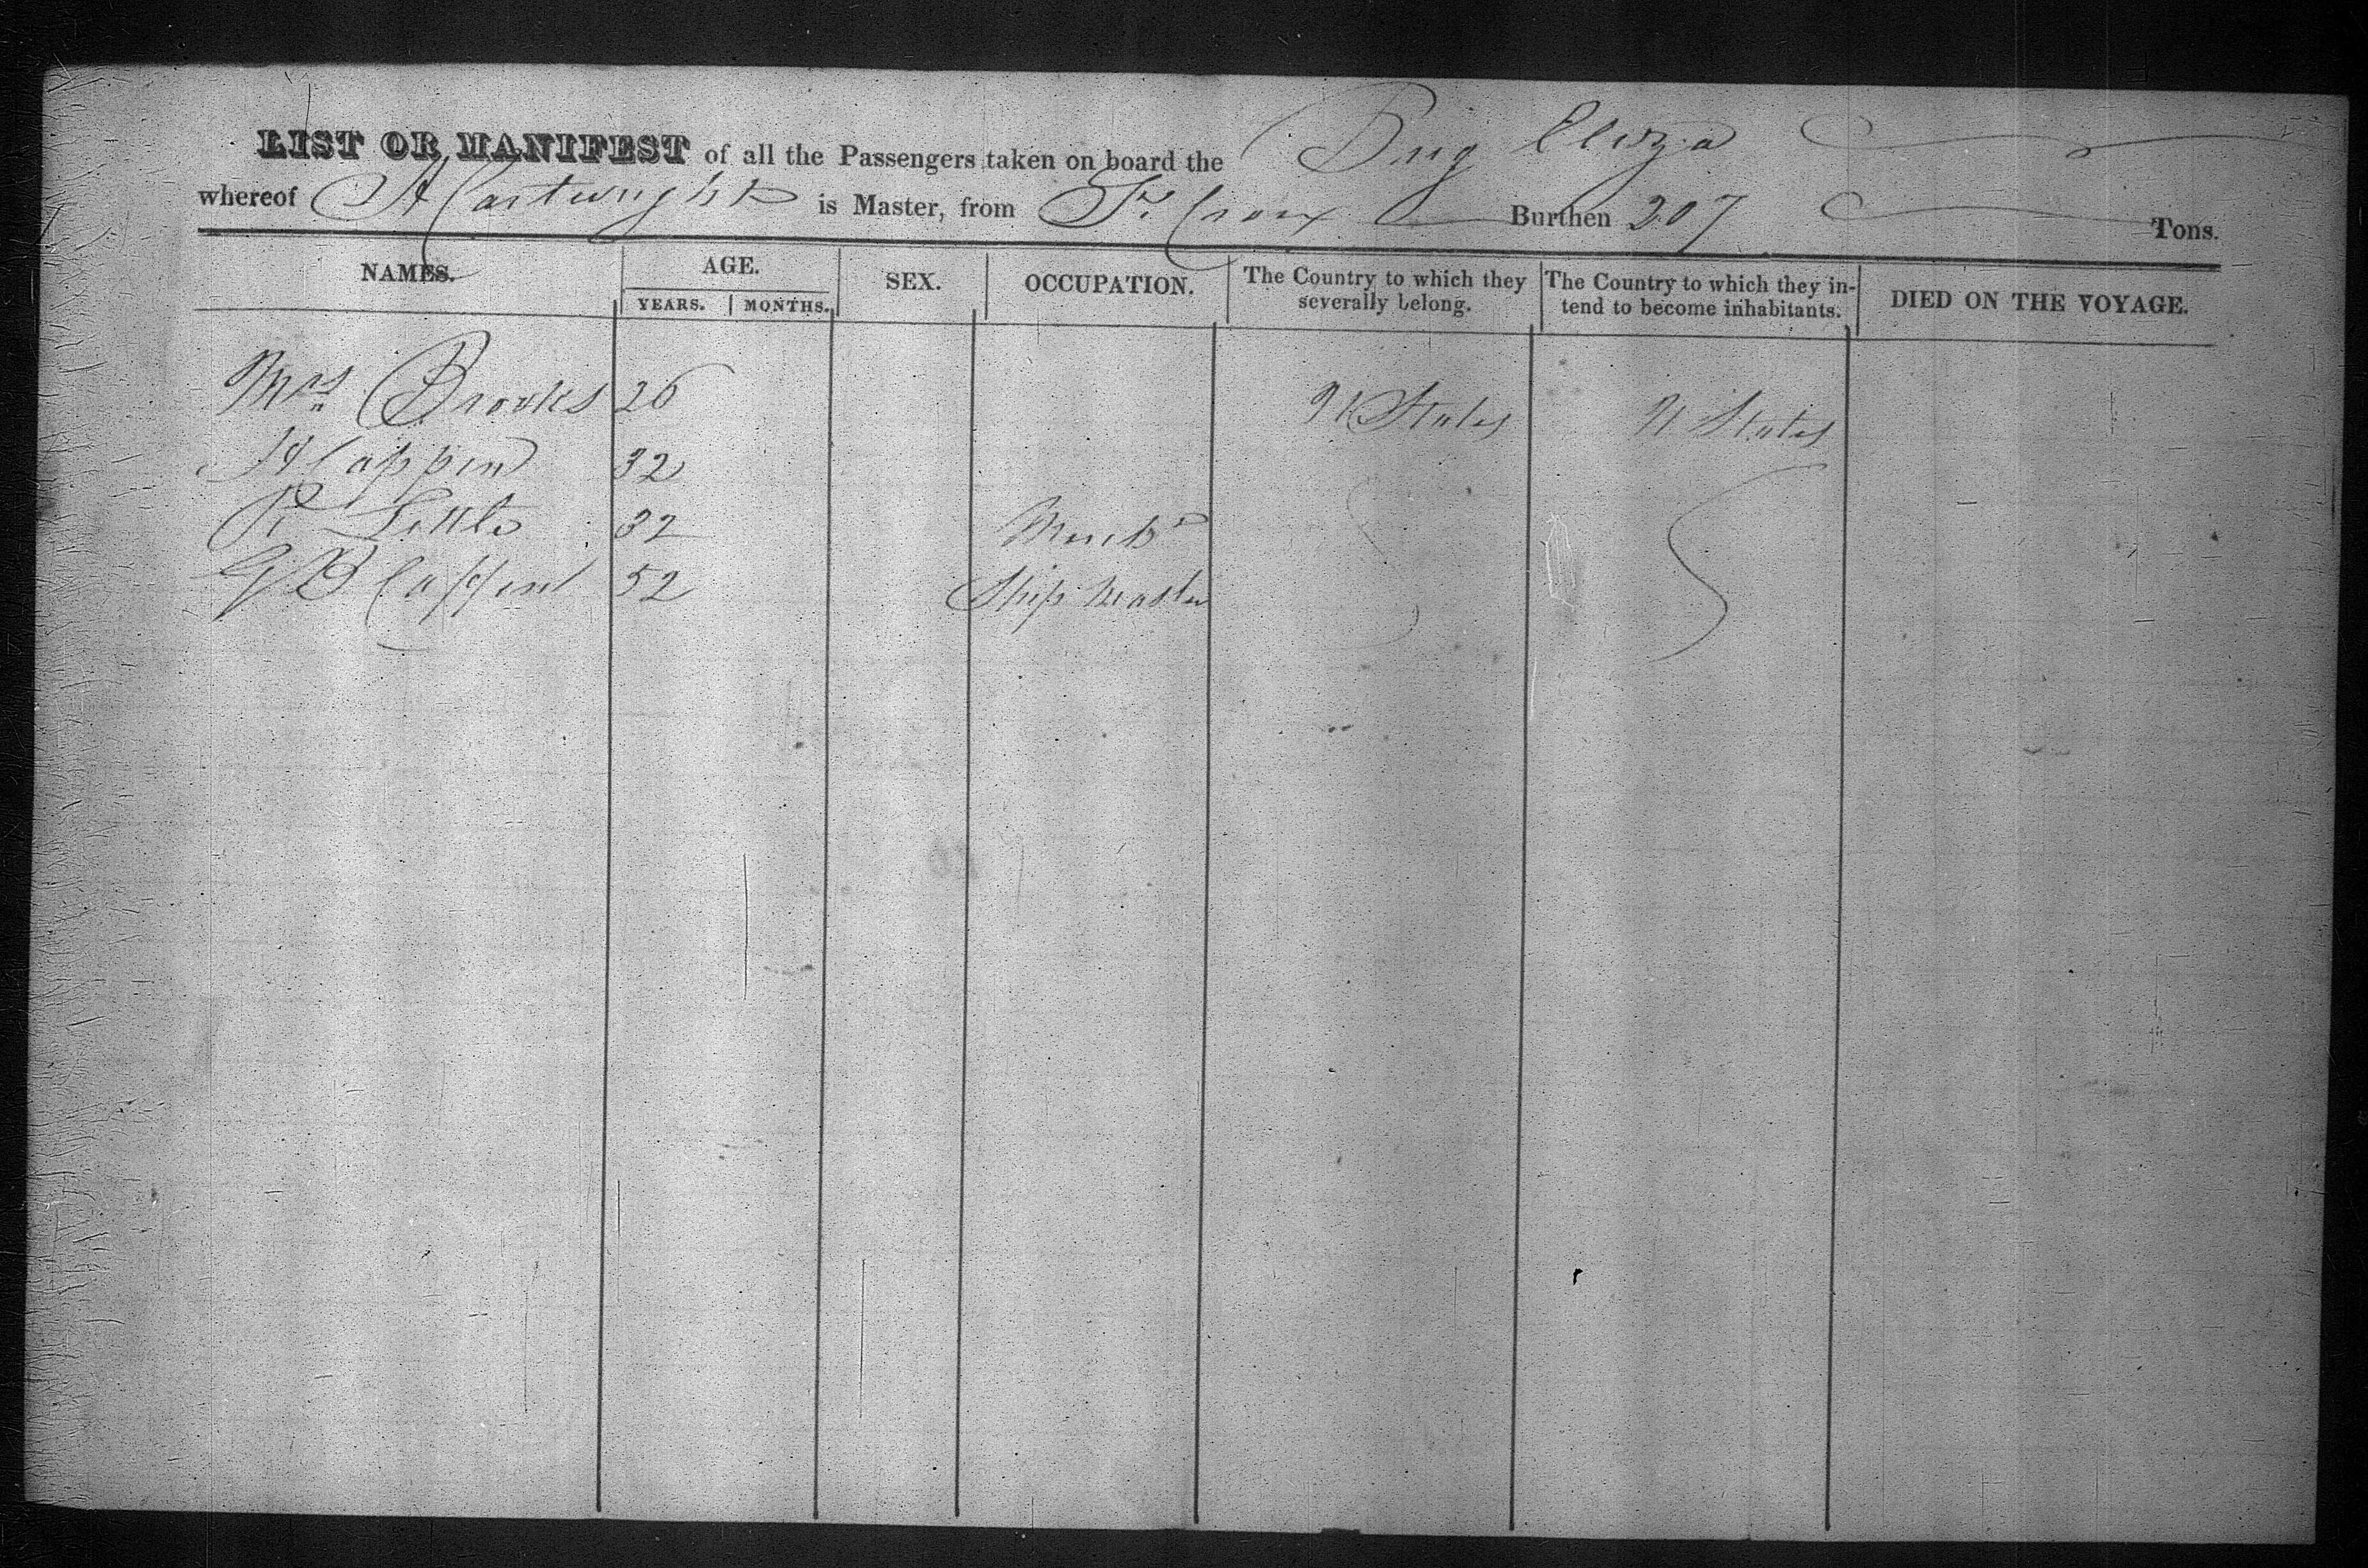 LIST OR MANIFEST of all the Passengers taken on board the Brig Eliza
whereof A Cartwright is Master, from St. Croix Burthen 207 Tons.
NAMES. AGE. SEX. OCCUPATION. The Country to which they severally belong. The Country to which they intend to become inhabitants. DIED ON THE VOYAGE.
YEARS. MONTHS.
Mrs Brooks 26 U States U States
32
R Little 32 Merch
G B 52 Ship Master